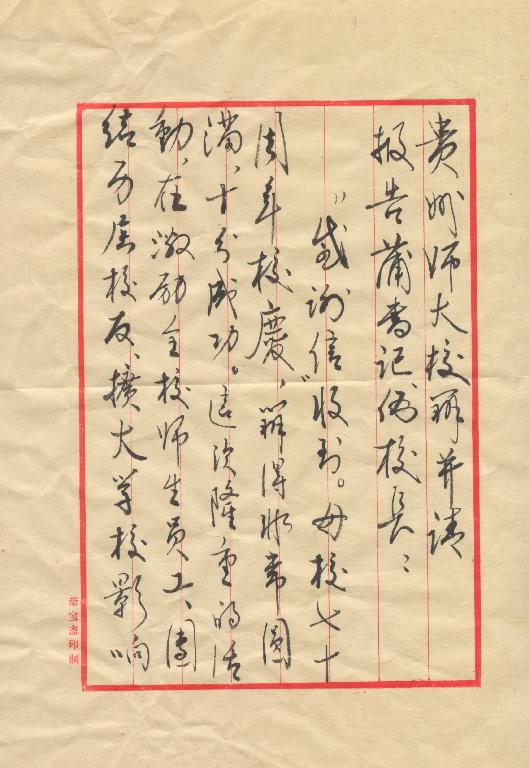 贵州师大校辦并请
报告蒲书记伍校长：
“感谢信”收到。母校七十
周年校慶，辦得非常圆
满，十分成功。這次隆重的活
動，在激励全校师生员工、團
结历届校友、擴大学校影响
荣宝斋印制